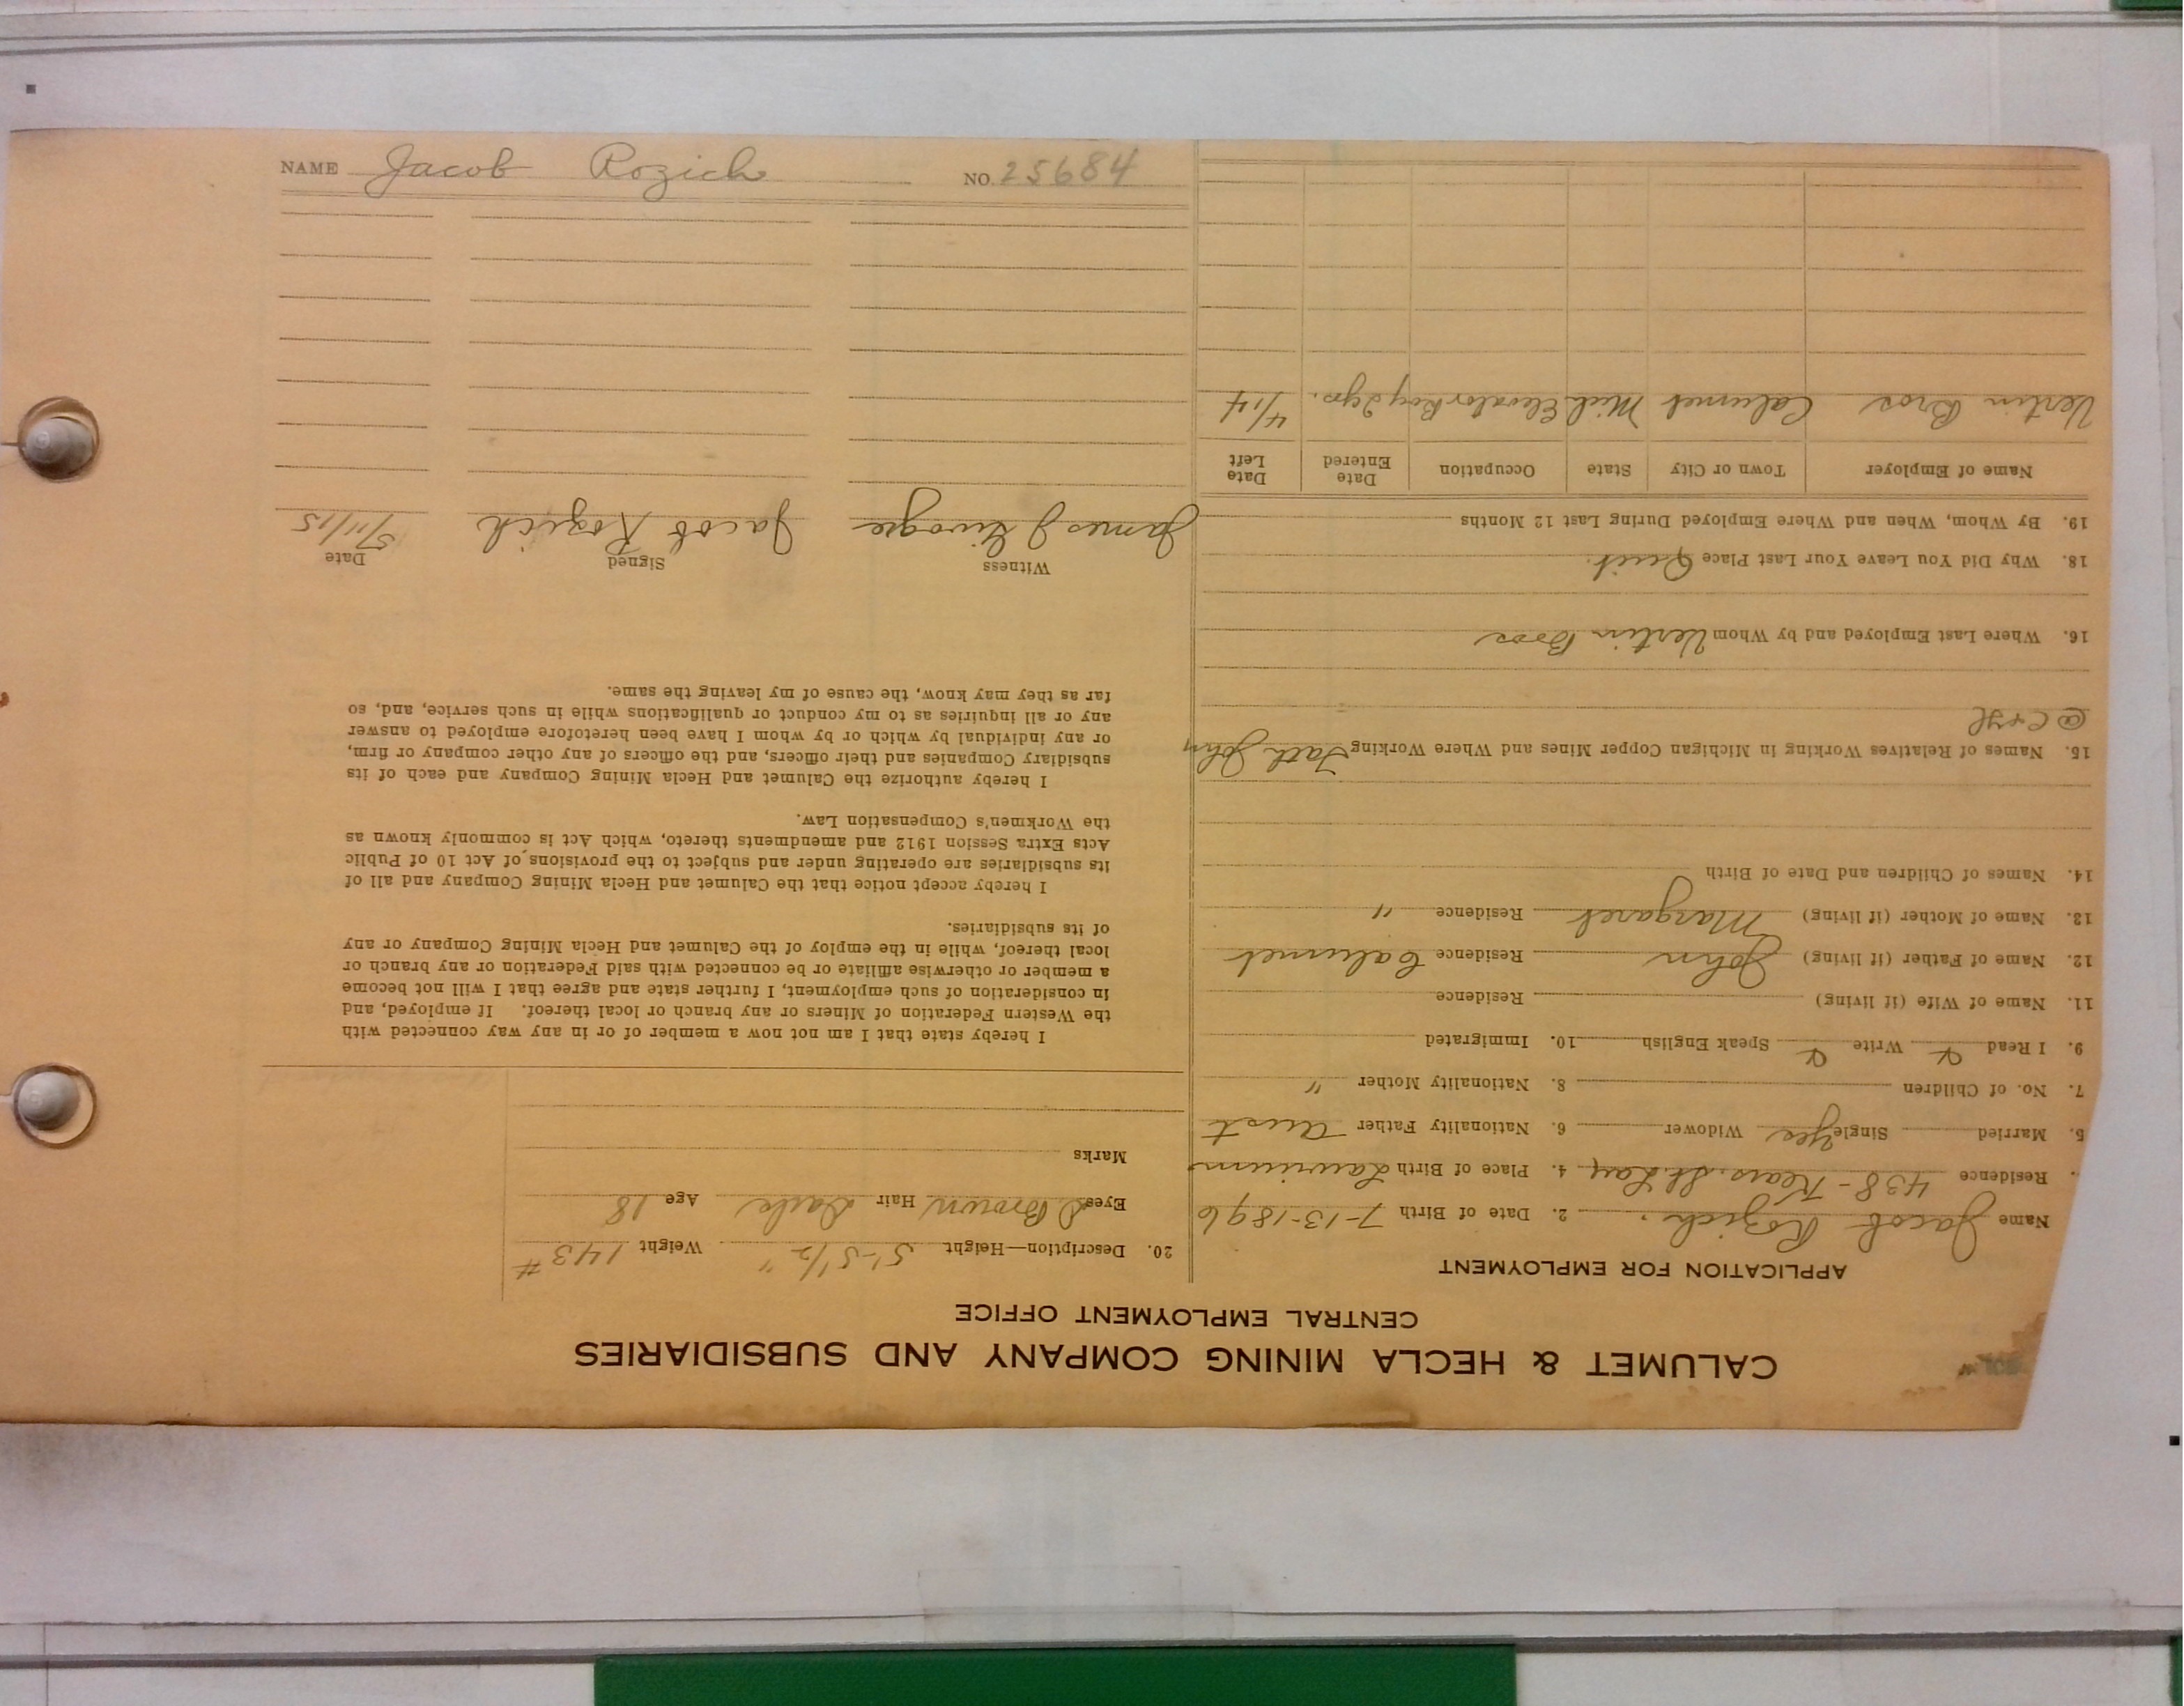 CALUMET & HECLA MINING COMPANY AND SUBSIDIARIES
CENTRAL EMPLOYMENT OFFICE
APPLICATION FOR EMPLOYMENT
Name Jacob Rozich. 2. Date of Birth 7-13-1896
Residence 438 - Kears. St. Lau 4. Place of Birth Laurium
5. Married Single Yes Widower 6. Nationality Father Aust
7. No. of Children 8. Nationality Mother "
9. I Read Write Speak English 10. Immigrated
11. Name of Wife (if living) Residence
12. Name of Father (if living) John Residence Calumet
13. Name of Mother (if living) Margaret Residence "
14. Names of Children and Date of Birth
15. Names of Relatives Working in Michigan Copper Mines and Where Working Fath John
@ C & H
16. Where Last Employed and by Whom Vertin Bros
18. Why Did You Leave Your Last Place Quit.
19. By Whom, When and Where Employed During Last 12 Months
Name of Employer Town or City State Occupation Date Entered Date Left
Vertin Bros Calumet Mich Elevator Boy 2 yrs. 4/14
20. Description—Height 5'-5 1/2" Weight 143 #
Eyes D Brown Hair Dark Age 18
Marks
I hereby state that I am not now a member of or in any way connected with
the Western Federation of Miners or any branch or local thereof. If employed, and
in consideration of such employment, I further state and agree that I will not become
a member or otherwise affiliate or be connected with said Federation or any branch or
local thereof, while in the employ of the Calumet and Hecla Mining Company or any
of its subsidiaries.
I hereby accept notice that the Calumet and Hecla Mining Company and all of
its subsidiaries are operating under and subject to the provisions of Act 10 of Public
Acts Extra Session 1912 and amendments thereto, which Act is commonly known as
the Workmen's Compensation Law.
I hereby authorize the Calumet and Hecla Mining Company and each of its
subsidiary Companies and their officers, and the officers of any other company or firm,
or any individual by which or by whom I have been heretofore employed to answer
any or all inquiries as to my conduct or qualifications while in such service, and, so
far as they may know, the cause of my leaving the same.
Witness Signed Date
James J Jacob Rozich 5/11/15
NAME Jacob Rozich NO. 25684